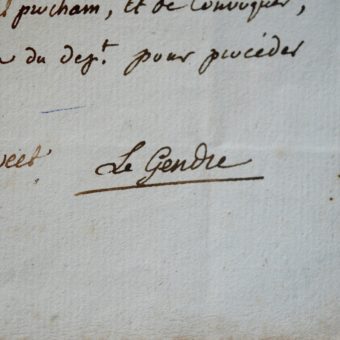 prochain, et de convoquer,
du dep.t pour procéder
Le Gendre